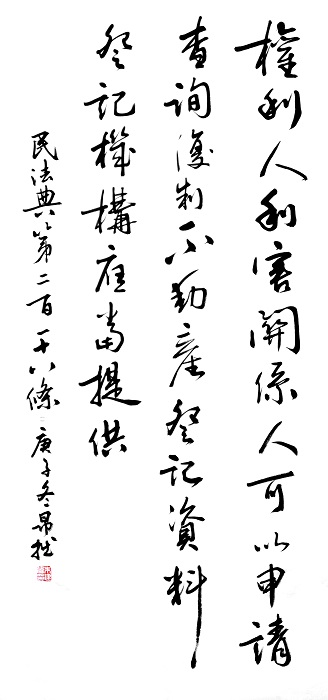 權利人利害關係人可以申請
查詢復制不動產登記資料
登記機構應當提供
民法典第二百一十八條 庚子冬昂拙